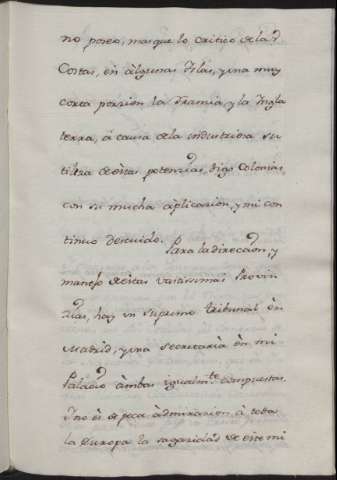 no poseo, mas que lo critico de las
Costas, en algunas Yslas, y una muy
corta porsion la Francia, y la Yngla
terra, á causa de la industriosa su
tileza de estas potenzias, digo Colonias,
con su mucha aplicacion, y mi con
tinuo descuido. Para la direccion, y
manejo de estas vastissimas Provin
zias, hay un Supremo Tribunal en
Madrid, y una secretaria en mi
Palacio ambas igualmte compuestas,
y no es de poca admiracion, á toda
la Europa la sagacidad de este mi